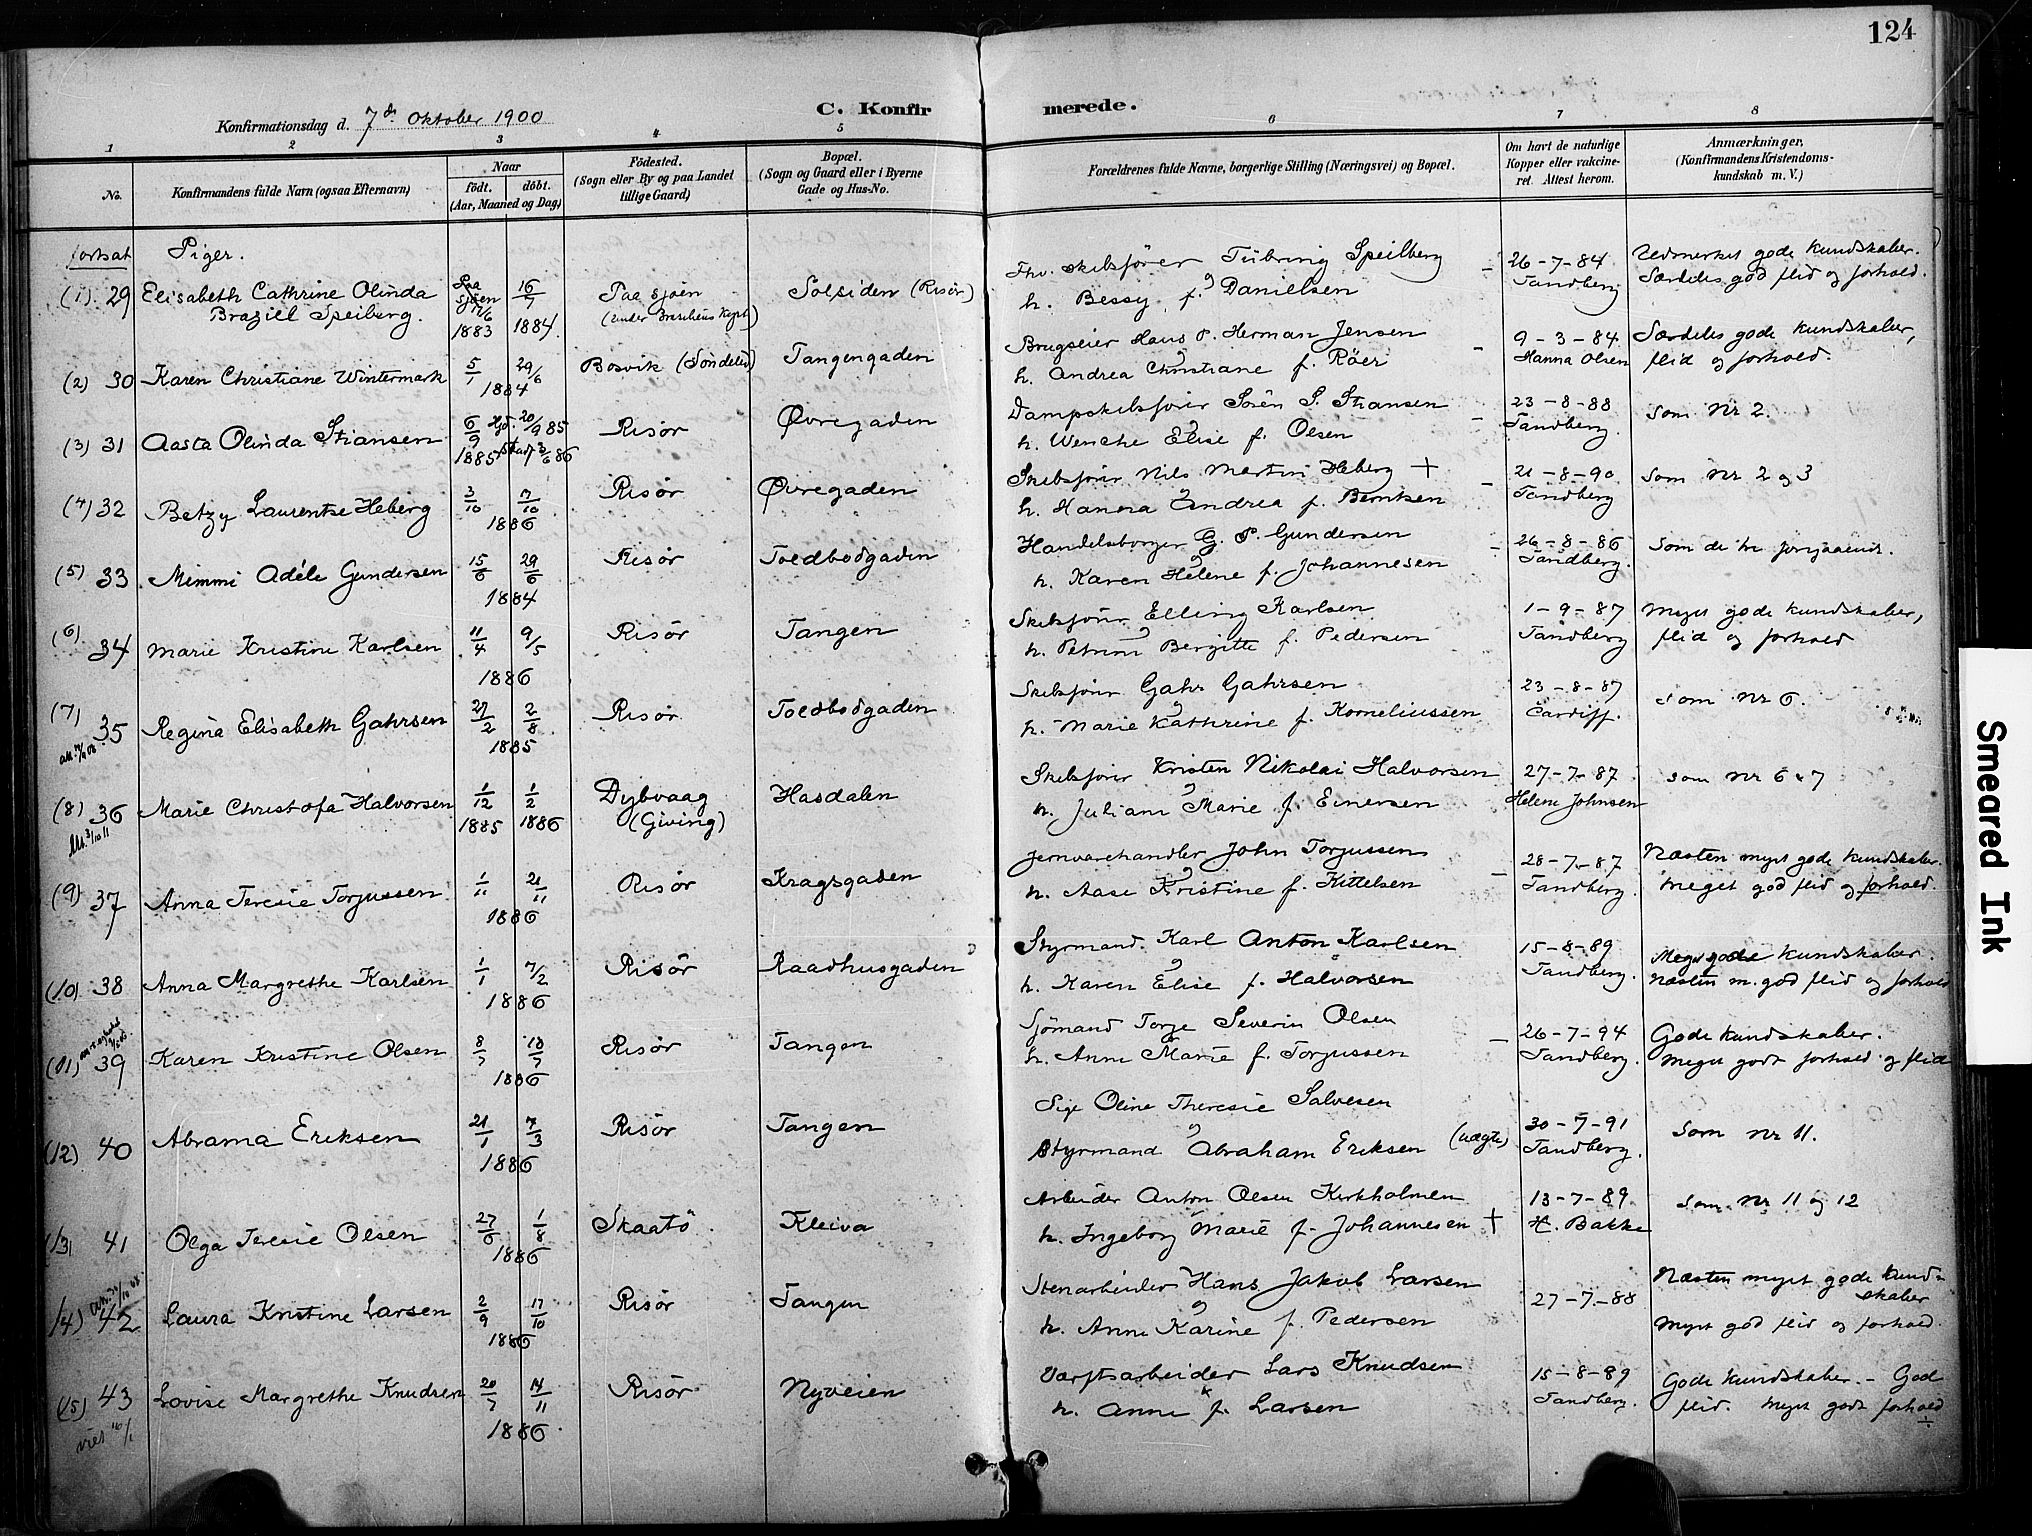 124
Konfirmationsdag d. 7de Oktober 1900
C. Konfirmerede.
1 2 3 4 5 6 7 8
No.
Konfirmandens fulde Navn (ogsaa Efternavn)
Naar
födt. döbt.
(Aar, Maaned og Dag)
Födested.
(Sogn eller By og paa Landet
tillige Gaard)
Bopæl.
(Sogn og Gaard eller i Byerne
Gade og Hus-No.
Forældrenes fulde Navne, borgerlige Stilling (Næringsvei) og Bopæl.
Om havt de naturlige
Kopper eller vakcine-
ret. Attest herom.
Anmærkninger,
(Konfirmandens Kristendoms-
kundskab m. V.)
fortsat Piger.
(1) 29 Elisabeth Cathrine Olinda
Brazill Speiberg.
Paa Sjøen
1883
16/7 1884
Paa sjøen
Solsiden (Risør)
Fhv. skibsfører Tübring Speilberg
og
h. Bessy f. Danielsen
26-7-84
Tandberg
Udmerket gode kundskaber.
Særdeles god flid og forhold.
(2) 30 Karen Christiane Wintermark
5/1 29/6
1884
Bosvik (Søndeled)
Tangengaden
Brugseier Hans P. Herman Jensen
og
h. Andrea Christiane f. Röer
9-3-84
Hanna Olsen
Særdeles gode kundskaber,
flid og forhold.
(3) 31 Aasta Olinda Stiansen
6/9 Hjd. 20/9 85
1885 Stadf. 3/6 86
Risør
Øvregaden
Dampskibsfører Sorën S. Stiansen
og
h. Wenche Elise f. Olsen
23-8-88
Tandberg.
Som Nr 2.
(4) 32 Betzy Laurentse Heberg
3/10 17/10
1886
Risør
Øvregaden
Skibsfører Nils Martin Heberg +
og
h. Hanna Andrea f. Berntsen
21-8-90
Tandberg
Som Nr 2 og 3
(5) 33 Mimmi Adéle Gundersen
15/6 29/6
1884
Risør
Toldbodgaden
Handelsborger G. P. Gundersen
og
h. Karen Helene f. Johannesen
26-8-86
Tandberg.
Som de tre foregaaende.
(6) 34 Marie Kristine Karlsen
11/4 9/5
1886
Risør
Tangen
Skibsfører Elling Karlsen
og
h. Petrine Bergitte f. Pedersen
1-9-87
Tandberg
Meget gode kundskaber,
flid og forhold
(7) 35 Regina Elisabeth Gahrsen
27/2 2/8
1885
Risør
Toldbodgaden
Skibsfører Gahr Gahrsen
og
h. Marie Kathrine f. Korneliussen
23-8-87
Cardiff.
som Nr 6.
(8) 36 Marie Christofa Halvorsen
1/12 1/2
1885 1886
Dybvaag
(Giving)
Hasdalen
Skibsfører Kristen Nikolai Halvorsen
og
h. Juliane Marie f. Einersen
27-7-87
Helene Johnsen
som Nr 6 & 7
(9) 37 Anna Teresie Torjussen
1/11 21/11
1886
Risør
Kragsgaden
Jernvarehandler John Torjussen
og
h. Aase Kristine f. Kittelsen
28-7-87
Tandberg.
Næsten meget gode kundskaber.
Meget god flid og forhold.
(10) 38 Anna Margrethe Karlsen
1/1 7/2
1886
Risør
Raadhusgaden
Styrmand. Karl Anton Karlsen
og
h. Karen Elise f. Halvorsen
15-8-89
Tandberg.
Meget gode kundskaber.
Næsten m. god flid og forhold
(11) 39 Karen Kristine Olsen
8/7 18/7
1886
Risør
Tangen
Sjømand Torje Severin Olsen
og
h. Anne Marie f. Torjussen
26-7-94
Tandberg.
Gode kundskaber.
Meget godt forhold og flid
(12) 40 Abrama Eriksen
21/1 7/3
1886
Risør
Tangen
Pige Oline Theresie Salvesen
og
Styrmand Abraham Eriksen (uægte)
30-7-91
Tandberg.
Som Nr 11.
(13) 41 Olga Teresie Olsen
27/6 1/8
1886
Skaatö
Kleiva
Arbeider Anton Olsen Kirkholmen
h. Ingeborg Marie f. Johannesen +
13-7-89
H. Bakke
Som Nr 11 og 12
(14) 42 Laura Kristine Larsen
2/9 17/10
1886
Risør
Tangen
Stenarbeider Hans Jakob Larsen
og
h. Anne Karine f. Pedersen
27-7-88
Næsten meget gode kund-
skaber
Meget god flid og forhold.
(15) 43 Lovise Margrethe Knudsen
20/7 14/11
1886
Risør
Nyveien
Verftsarbeider Lars Knudsen
h. Anne f. Larsen
15-8-89
Tandberg.
Gode kundskaber. - God
flid. Meget godt forhold
Smeared Ink